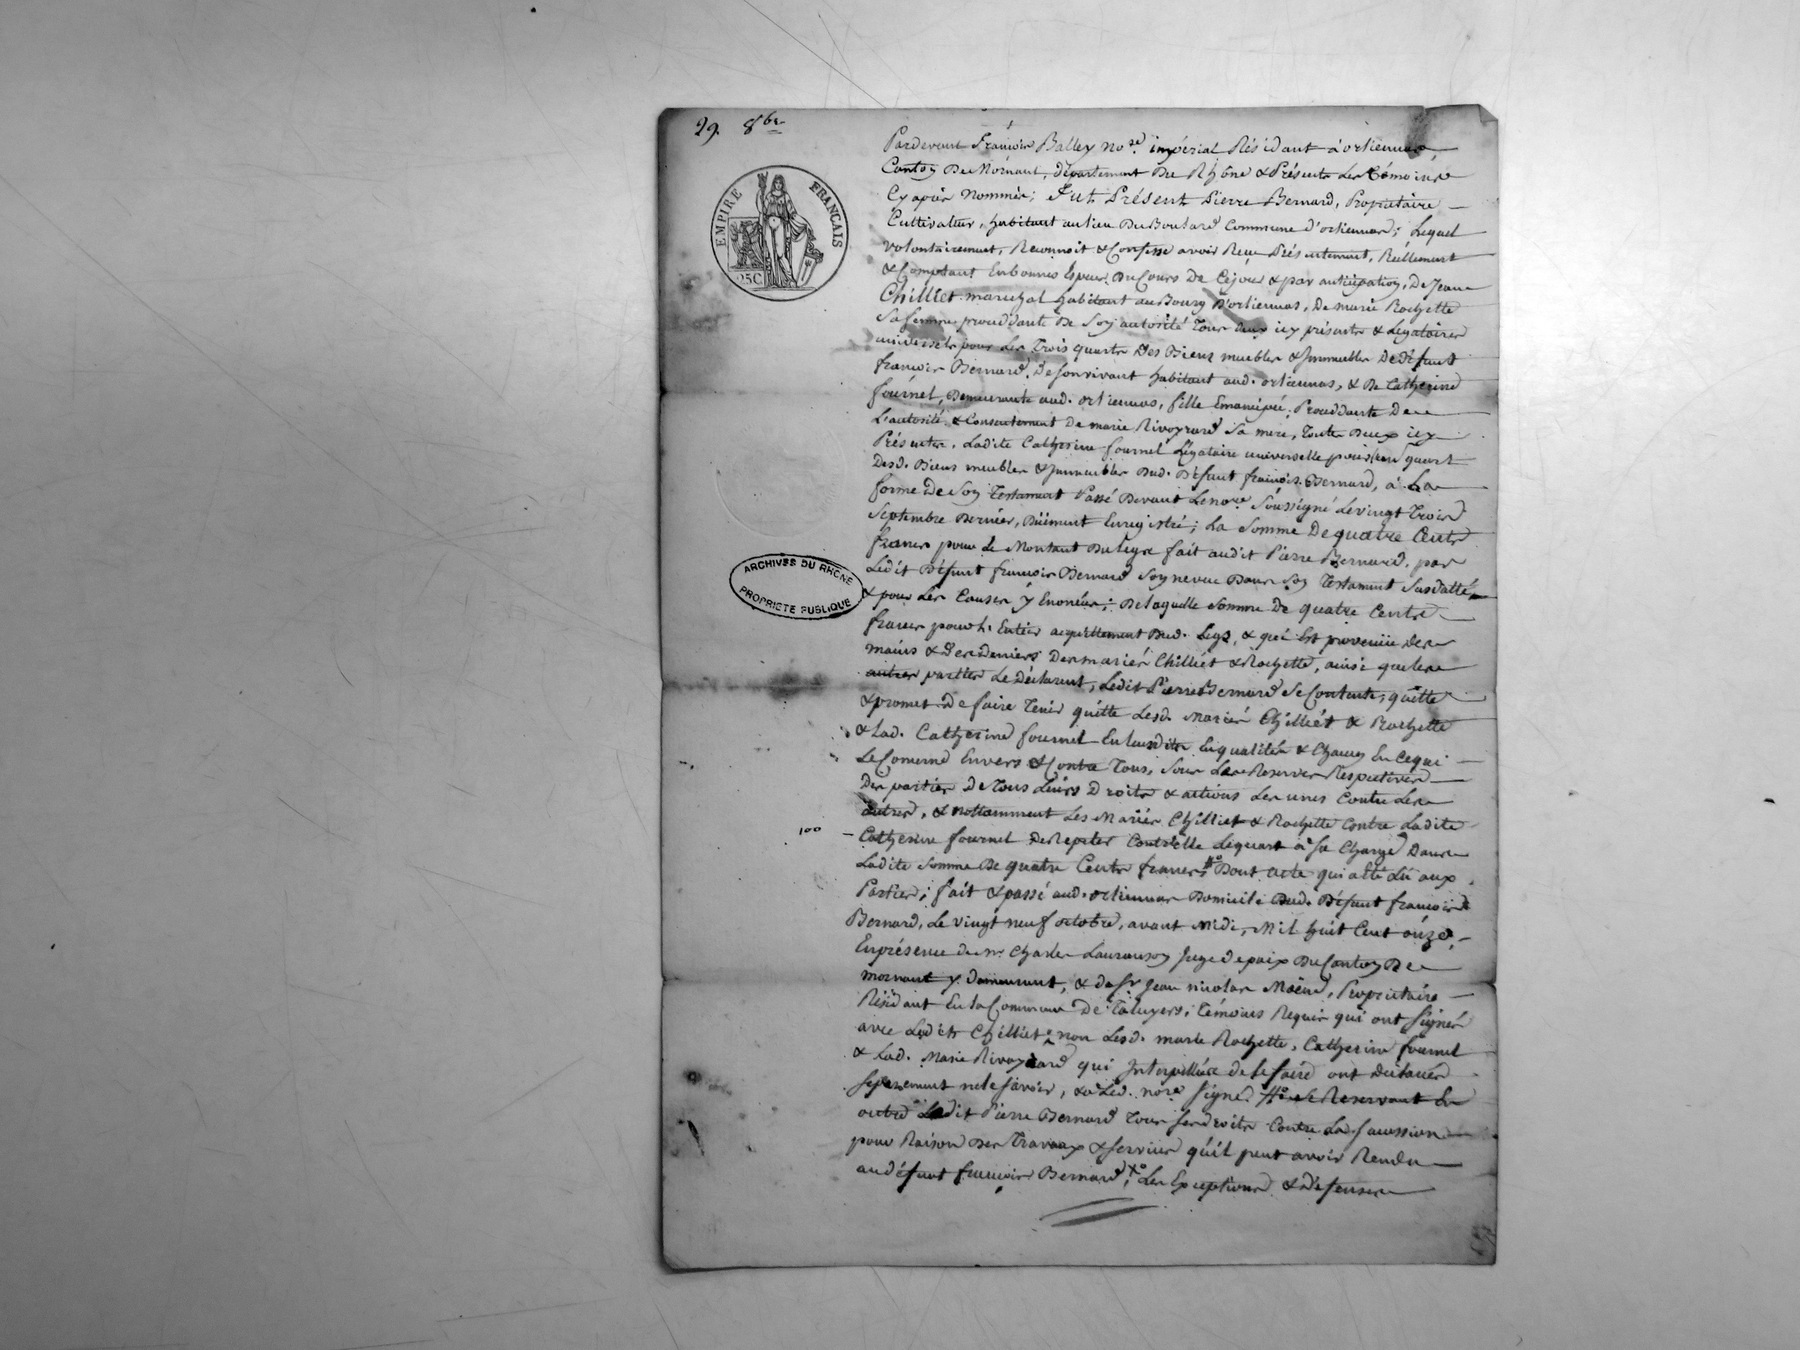 29. 8bre
Pardevant François Balley nore. impérial Résidant à orliennas,
Canton De Mornant, département Du Rhône & Présents Les Témoins
Cy après nommés; Fut Présent Pierre Bernard, Propriétaire
Cultivateur, habitant au lieu Du Boulard Commune d'orliennas; Lequel
volontairement, Reconnoit & Confesse avoir Reçu Présentement, Réellement
& Comptant En bonnes Espèces Du Cours De Cejour & par anticipation, De Jean
Chilliet marechal habitant au Bourg D'orliennas, De marie Rochette
Sa femme, procédante De Son autorité Tous deux icy présents & Légataires
universels pour Les Trois quarts Des Biens meubles & Immeubles De Défunt
françois Bernard, De son vivant habitant aud. orliennas, & De Catherine
fournel, Demeurante aud. orliennas, fille Emancipée, Procédante De
L'autorité & Consentement De marie Rivoyrard Sa mère, Toutes Deux icy
Présentes, Ladite Catherine fournel Légataire universelle pour un quart
Desd. Biens meubles & Immeubles Dud. Défunt françois Bernard, à La
forme De Son Testament Passé Devant Le nore. Soussigné Le vingt Trois
Septembre Dernier, Düement Enregistré; La Somme De quatre Cents
francs pour Le Montant Du legs fait audit Pierre Bernard, par
Ledit Défunt françois Bernard Son neveu Dans Son Testament Susdatté,
& pour Les Causes y Enoncées; De laquelle Somme De quatre Cents
francs pour L'Entier acquittement Dud. Legs, & qui Est provenüe des
mains & des Deniers Des mariés Chilliet & Rochette, ainsi que les
autres parties Le Déclarent, Ledit Pierre Bernard Se Contente, quitte
& promet De faire Tenir quitte Lesd. Mariés Chilliet & Rochette
& Lad. Catherine fournel En leursdites qualités & Chacun En Cequi
Le Concerne Envers & Contre Tous, Sous Les Reserves Respectives
Des parties De Tous Leurs Droits & actions Les unes Contre Les
autres, & nottamment Les Mariés Chilliet & Rochette Contre Ladite
100
Catherine fournel De Repeter Contr'elle Le quart à Sa Charge Dans
Ladite Somme De quatre Cents francs; Dont acte qui a été Lu aux
Parties; fait & passé aud. orliennas Domicile Dud. Défunt françois
Bernard, Le vingt neuf octobre, avant Midi, Mil huit Cent onze,
En présence de mr. Charles Lauranson Juge de paix Du Canton De
mornant y demeurant, & de Sr Jean nicolas Moëne, Propriétaire
Résidant En la Commune De Taluyers; Témoins Requis qui ont Signé
avec Ledit Chilliet non Lesd. marie Rochette, Catherine fournel
& Lad. Marie Rivoyrard qui Interpellées de le faire ont déclaré
Séparement ne le Savoir, & a Led. nore Signé. Se Reservant En
outre Ledit Pierre Bernard Tous Ses droits Contre Lad. Sucession
pour Raison Des Travaux & Services qu'il peut avoir Rendu
au défunt françois Bernard; Les Exceptions & défenses
EMPIRE FRANÇAIS
25C
ARCHIVES DU RHÔNE
PROPRIETE PUBLIQUE